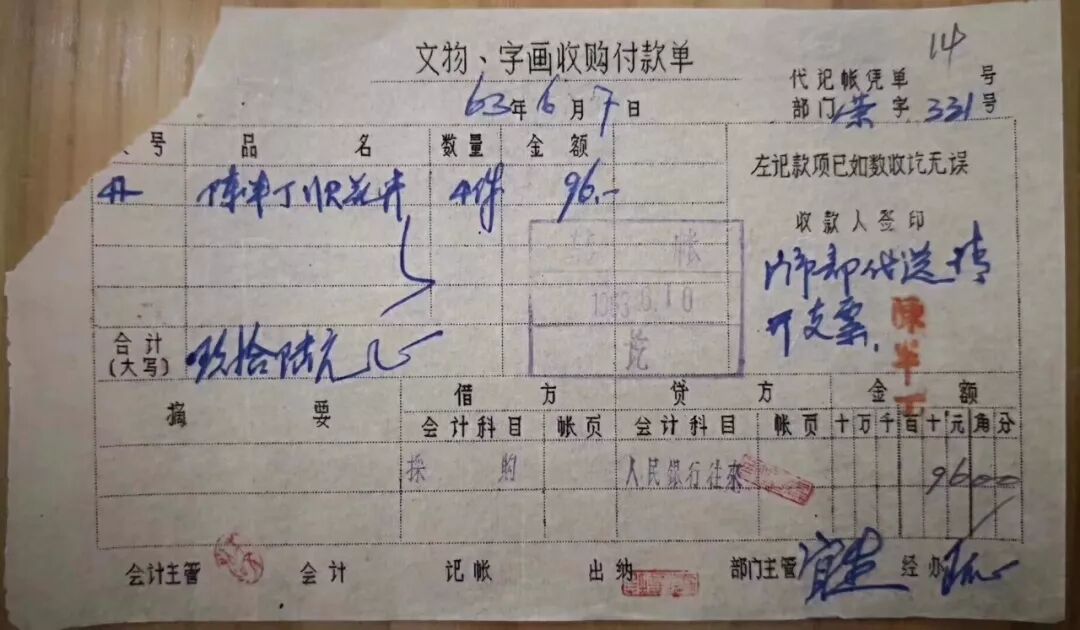 文物、字画收购付款单
14
代记帐凭单 号
63年6月7日
部门 荣字 331号
号 品名 数量 金额
左记款项已如数收讫无误
陈半丁 花卉 4件 96.-
收款人签印
帐
门市部代送请
1963.6.10
开支票.
陳半丁
讫
合计
(大写) 玖拾陆元
摘要 借方 贷方 金额
会计科目 帐页 会计科目 帐页 十万千百十元角分
採购 人民银行往來 9600
会计主管 会计 记帐 出纳 部门主管 经办